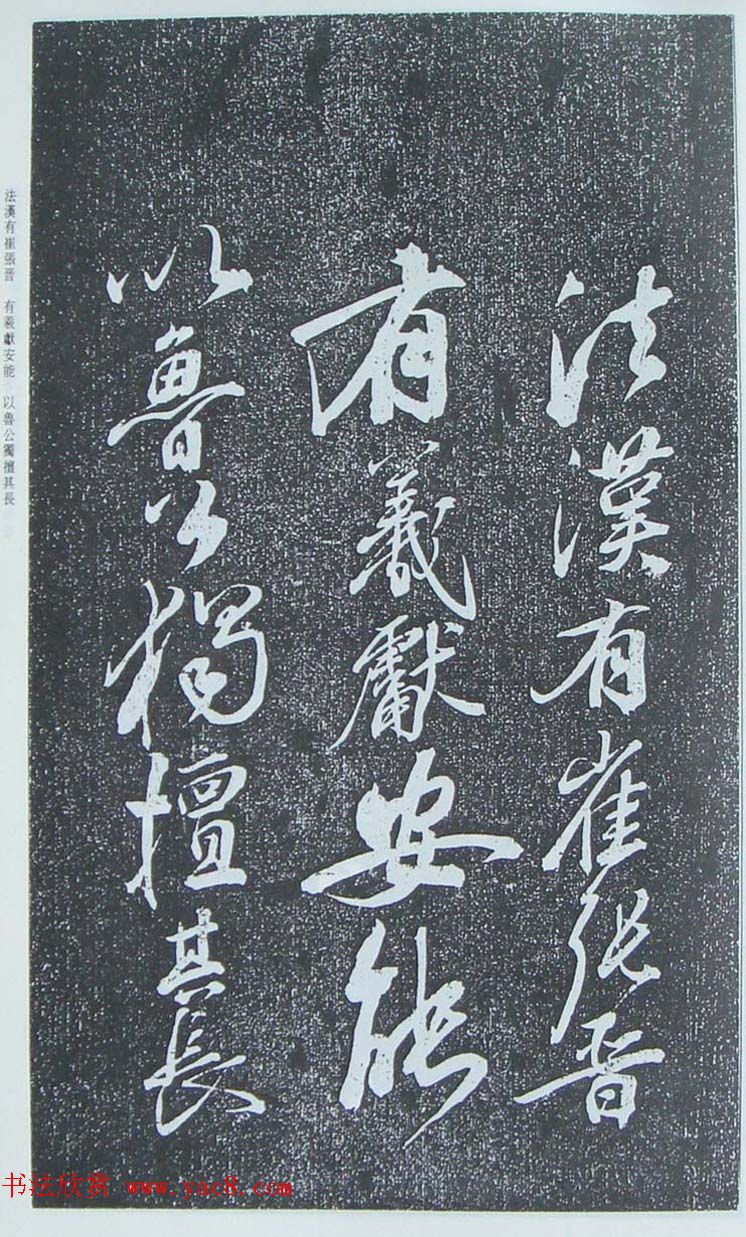 法漢有崔張晋
有羲獻安能
以魯公獨擅其長
法漢有崔張晋 有羲獻安能 以魯公獨擅其長
书法欣赏 www.yac8.com